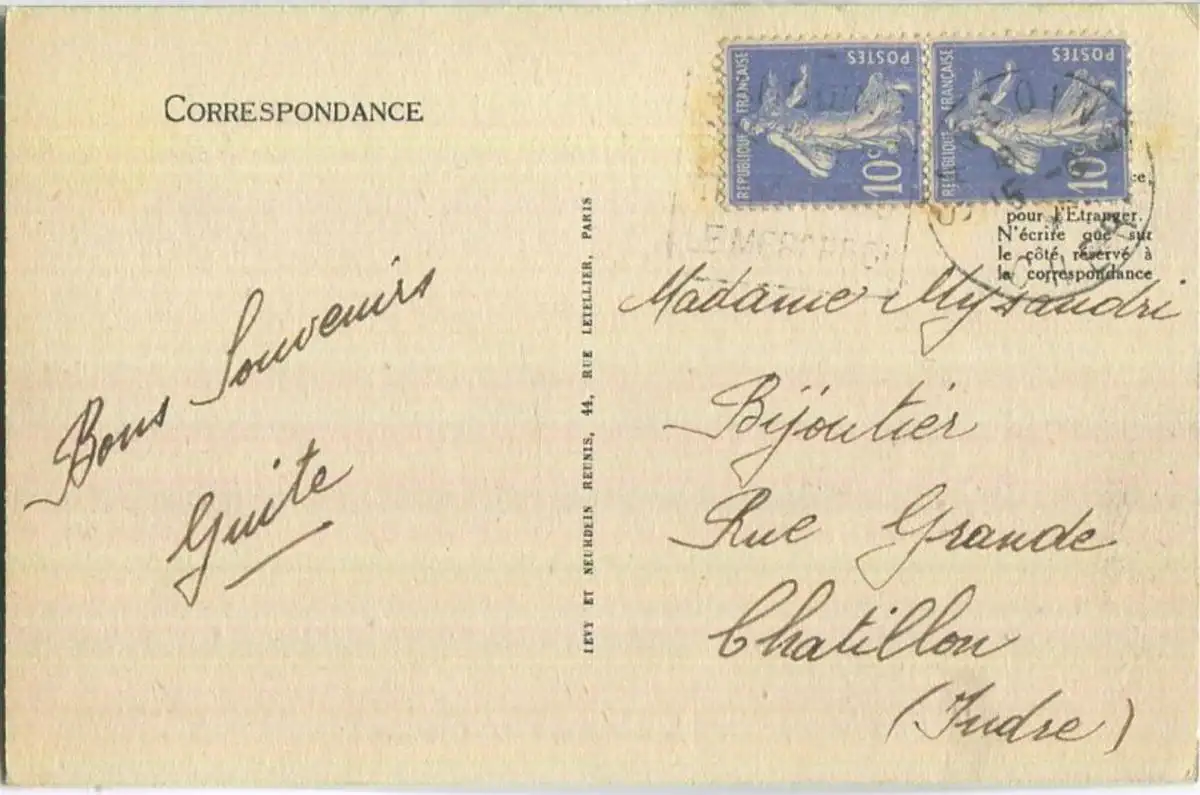 CORRESPONDANCE
Bons Souvenirs
Guite
LEVY ET NEURDEIN REUNIS, 44, RUE LETELLIER, PARIS
REPUBLIQUE FRANÇAISE
POSTES
10c
REPUBLIQUE FRANÇAISE
POSTES
10c
pour l'Etranger.
N'écrire que sur
le côté réservé à
la correspondance
Madame
Bijoutier
Rue Grande
Chatillon
(Indre)